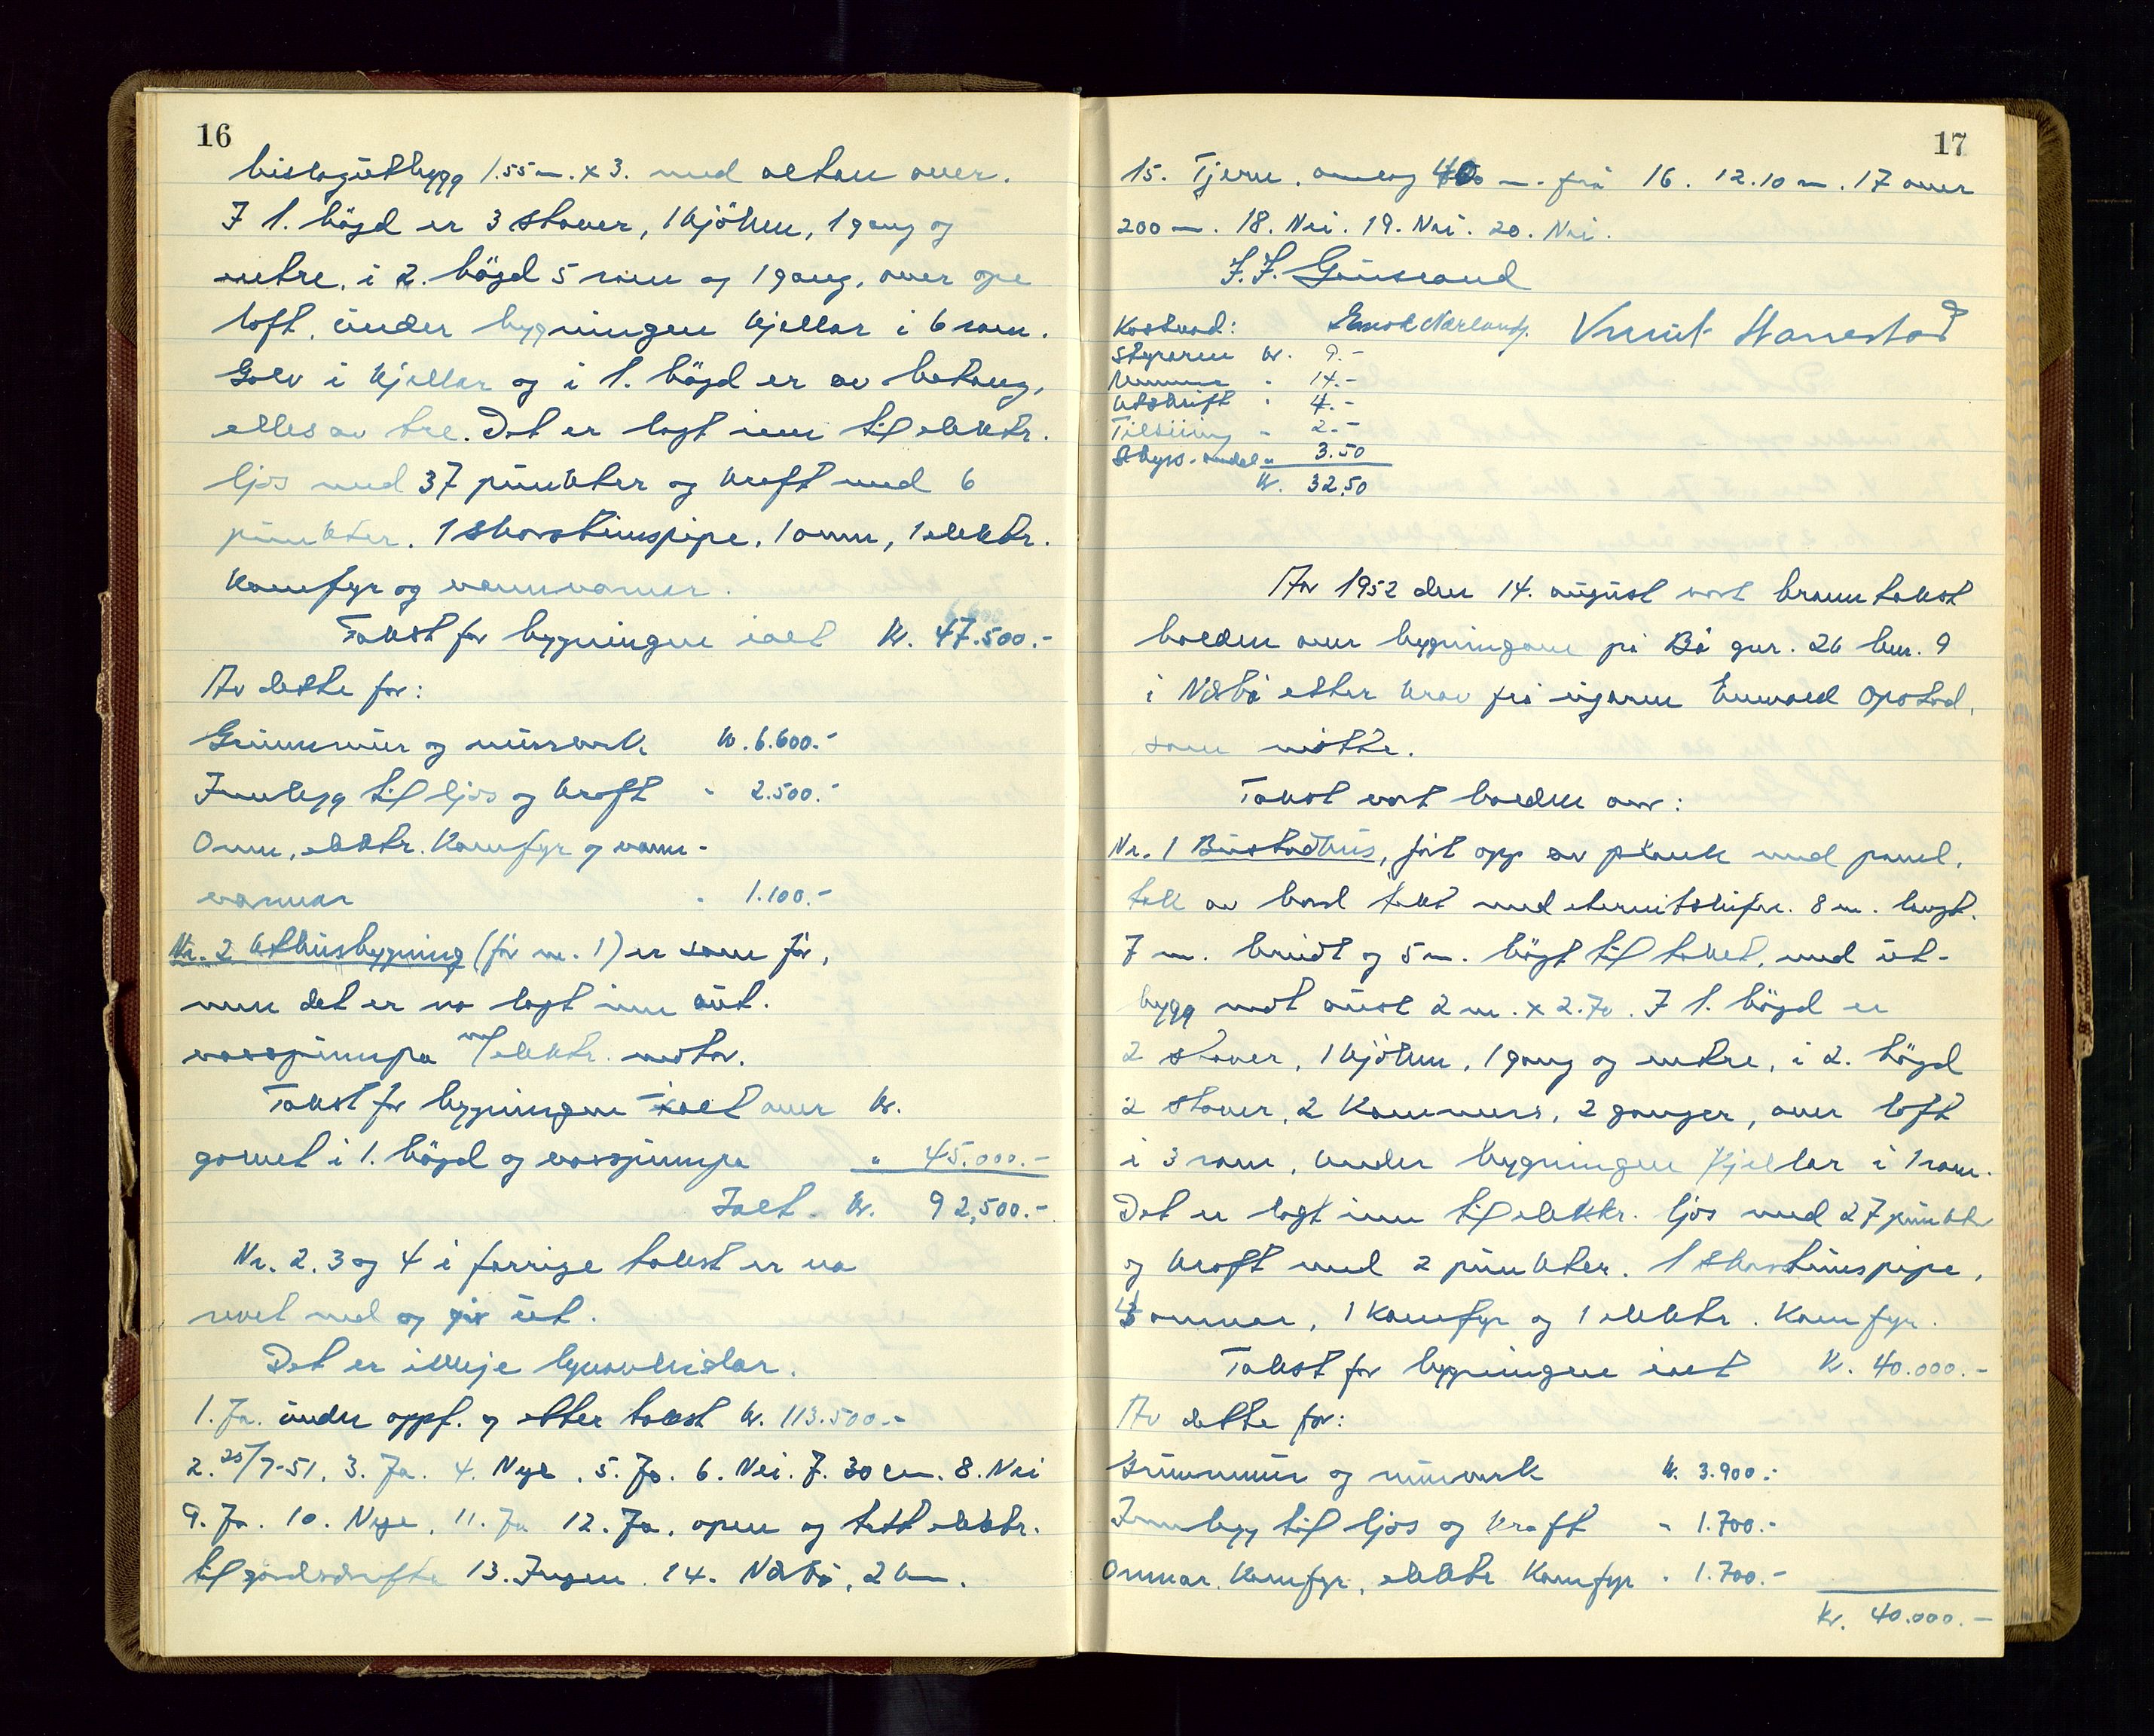 16
bislagutbygg 1.55 m. x 3. med altan over.
I 1. högd er 3 stover, 1 kjöken, 1 gang og
entre, i 2. högd 5 rom og 1 gang, over ope
loft, under bygningen kjellar i 6 rom.
Golv i kjellar og i 1. högd er av betong,
elles av tre. Det er lagt inn til elektr.
ljos med 37 punkter og kraft med 6
punkter. 1 skorsteinspipe, 1 omn, 1 elektr.
komfyr og varmvarmer.
6.600
Takst for bygningen ialt Kr. 47.500.-
Av dette for:
Grunnmur og murverk Kr. 6.600.-
Innlegg til ljos og kraft " 2.500.-
Omn, elektr. Komfyr og vann-
varmar " 1.100.-
Nr. 2 Uthusbygning (för nr. 1) er som för,
men det er no lagt inn aut.
vasspumpa m/elektr. motor.
Takst for bygningen ialt over Kr.
golvet i 1. högd og vasspumpa " 45.000.-
Ialt. Kr. 92,500.-
Nr. 2. 3 og 4 i forrige takst er no
revet ned og går ut.
Det er ikkje lynavleidar.
1. Ja. under oppf. og etter takst Kr. 113.500.-
2. 25/7-51. 3. Ja. 4. Nye. 5. Ja. 6. Nei. 7. 30 cm. 8. Nei
9. Ja. 10. Nye. 11. Ja 12. Ja, open og tett elektr.
til gardsdrifta 13. Ingen. 14. Nærbö, 2 km.
17
15. Tjern, omlag 40 m. frå 16. 12.10 m. 17 over
200 m. 18. Nei. 19. Nei. 20. Nei.
Kostnad:
Styraren kr. 9.-
" 14.-
Utskrift " 4.-
" 2.-
Skyss. " 3.50
Kr. 32.50
År 1952 den 14. august vart branntakst
halden over bygningane på Bö gnr. 26 bnr. 9
i Nærbö etter krav frå eigaren Enevald Opstad,
som møtte.
Takst vart halden over:
Nr. 1 Bustadhus, fört opp av plank med panel,
tak av bord tekt med eternitskifer. 8 m. langt.
7 m. breidt og 5 m. högt til taket, med ut-
bygg mot aust 2 m. x 2.70. I 1. högd er
2 stover, 1 kjöken, 1 gang og entre, i 2. högd
2 stover, 2 kammers, 2 ganger, over loft
i 3 rom, under bygningen kjellar i 1 rom.
Det er lagt inn til elektr. ljos med 27 punkter
og kraft med 2 punkter. 1 skorsteinspipe,
omnar, 1 komfyr og 1 elektr. komfyr.
Takst for bygningen ialt Kr. 40.000.-
Av dette for:
Grunnmur og murverk Kr. 3.900.-
Innlegg til ljos og kraft " 1.700.-
Omnar, komfyr, elektr. komfyr " 1.700.-
Kr. 40.000.-